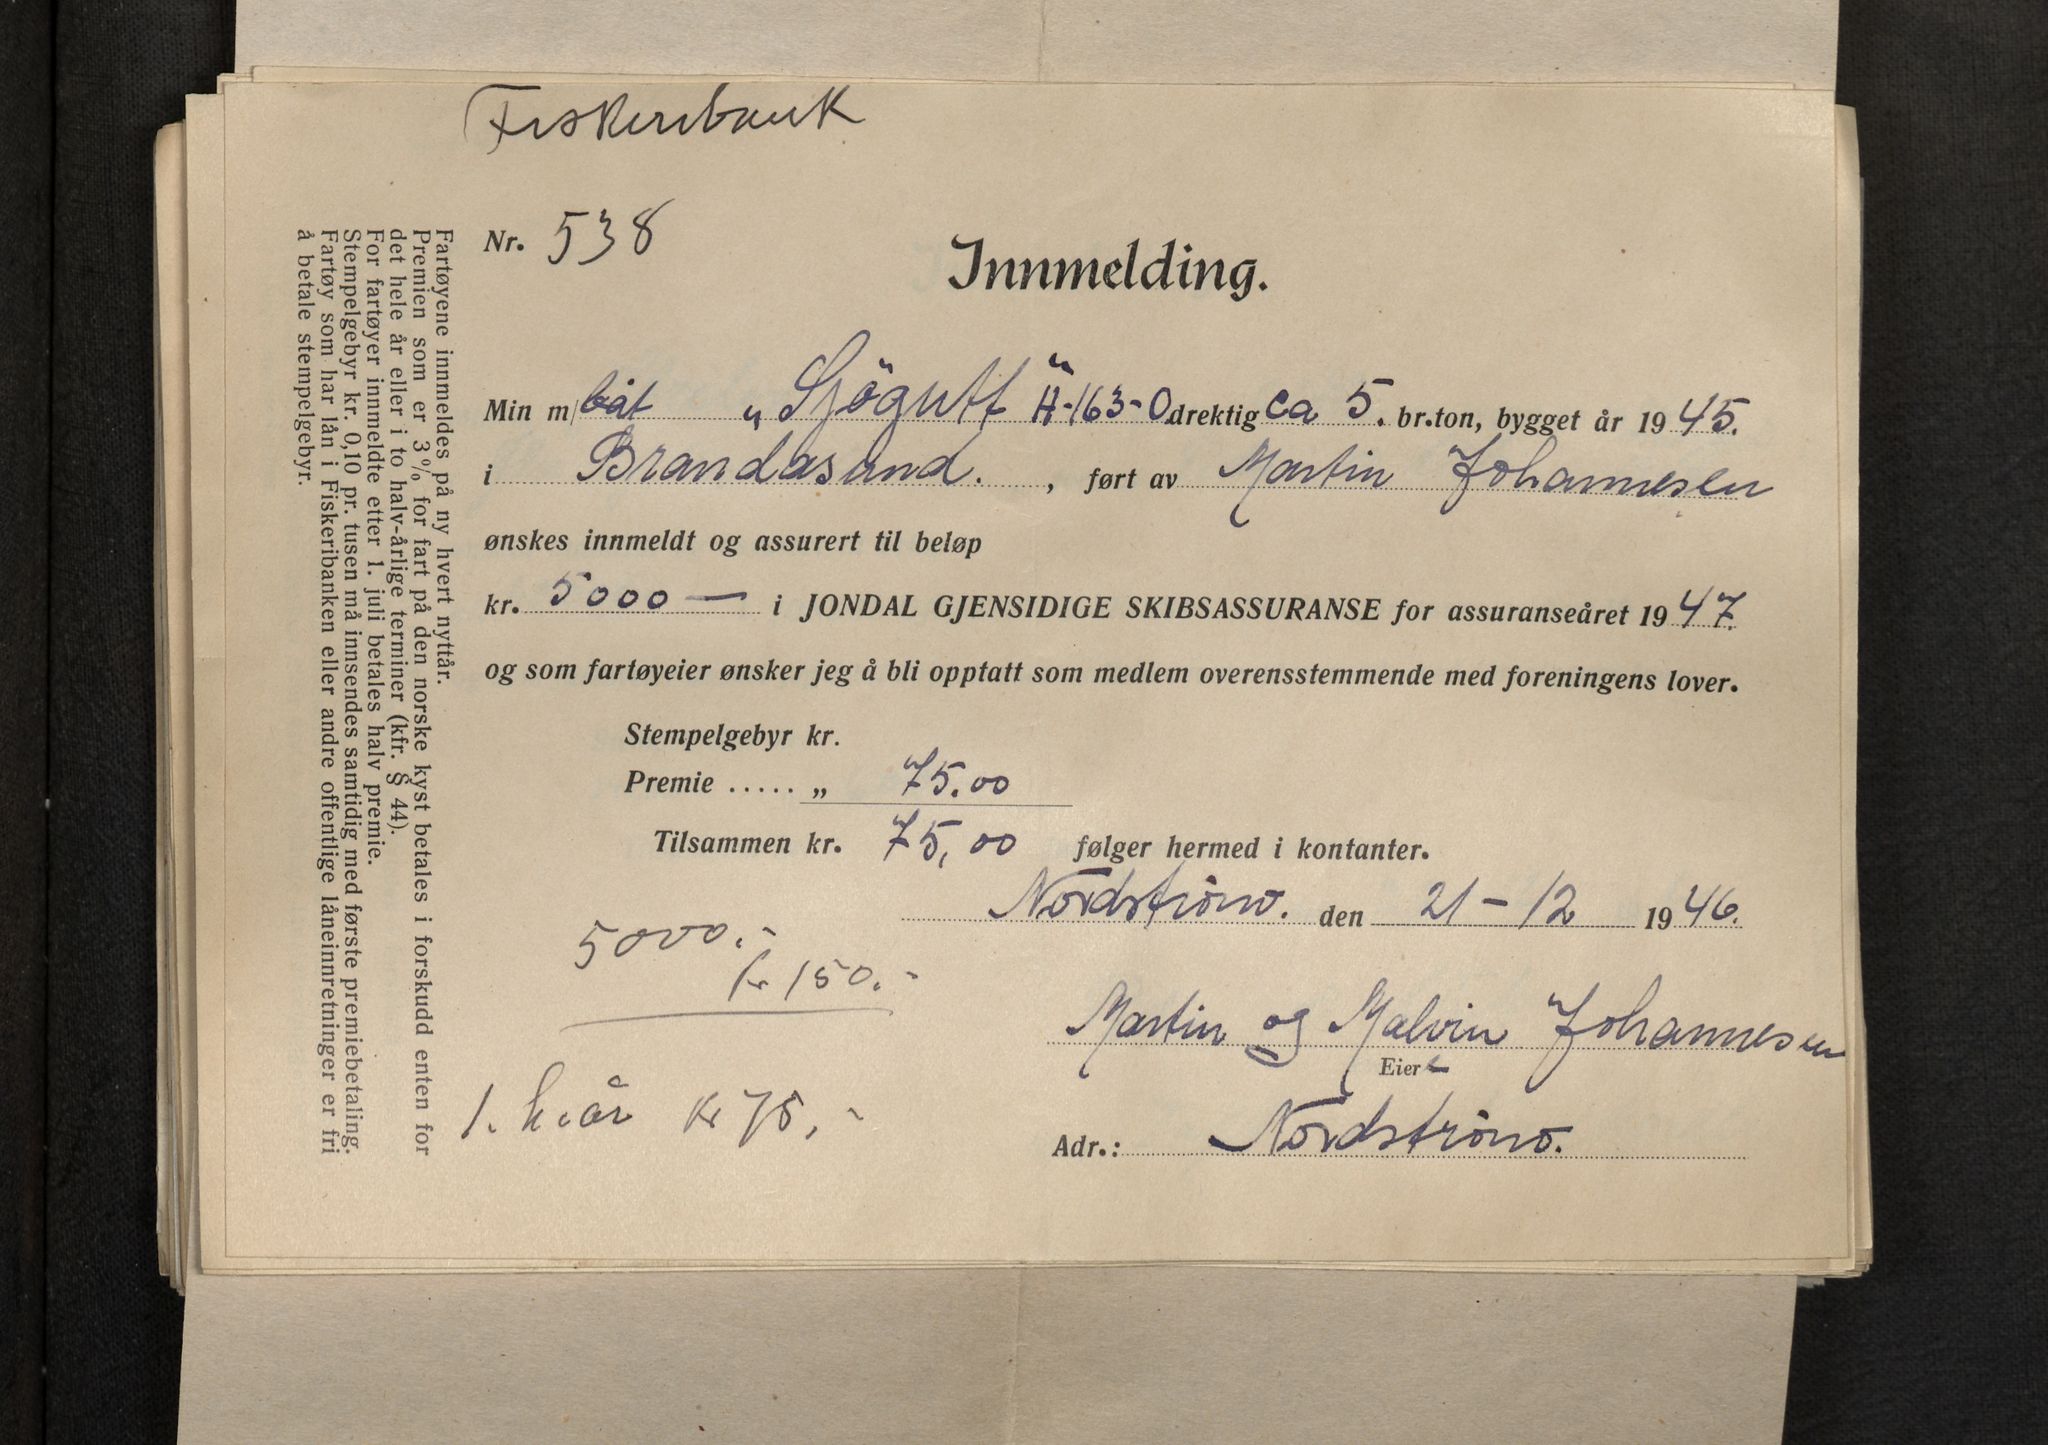 Fiskeribank
Nr. 538
Innmelding.
Min m/ båt „Sjögutt" H-163-O drektig ca 5. br.ton, bygget år 1945.
i Brandasund. , ført av Martin Johannesen
ønskes innmeldt og assurert til beløp
kr. 5000 — i JONDAL GJENSIDIGE SKIBSASSURANSE for assuranseåret 1947.
og som fartøyeier ønsker jeg å bli opptatt som medlem overensstemmende med foreningens lover.
Stempelgebyr kr.
Premie ..... „ 75.00
Tilsammen kr. 75,00 følger hermed i kontanter.
Nordstrøno. den 21-12 1946.
5000.-
kr 150.-
Martin og Malvin Johannesen
Eier
1. h.år kr 75,-
Adr.: Nordstrøno.
Fartøyene innmeldes på ny hvert nyttår.
Premien som er 3% for fart på den norske kyst betales i forskudd enten for
det hele år eller i to halv-årlige terminer (kfr. § 44).
For fartøyer innmeldte etter 1. juli betales halv premie.
Stempelgebyr kr. 0,10 pr. tusen må innsendes samtidig med første premiebetaling.
Fartøy som har lån i Fiskeribanken eller andre offentlige låneinnretninger er fri
å betale stempelgebyr.